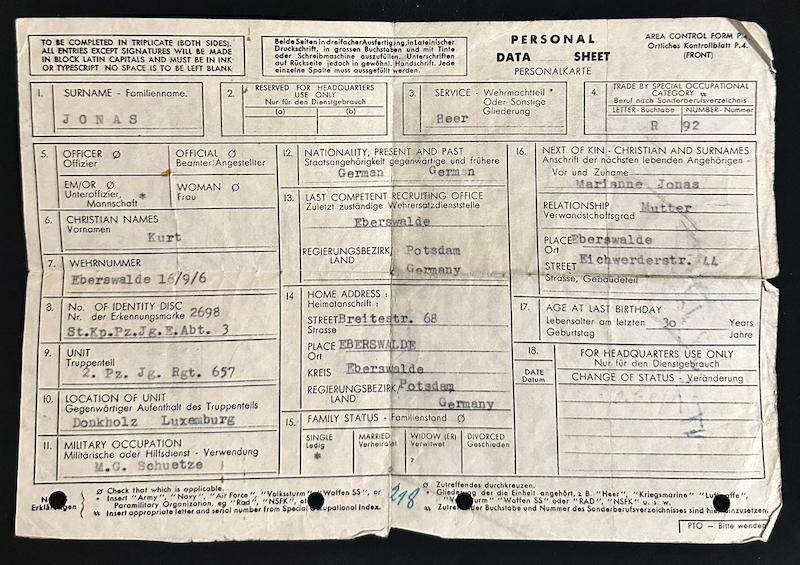 TO BE COMPLETED IN TRIPLICATE (BOTH SIDES).
ALL ENTRIES EXCEPT SIGNATURES WILL BE MADE
IN BLOCK LATIN CAPITALS AND MUST BE IN INK
OR TYPESCRIPT NO SPACE IS TO BE LEFT BLANK
Beide Seiten in dreifacher Ausfertigung, in Lateinischer
Druckschrift, in grossen Buchstaben und mit Tinte
oder Schreibmaschine auszufüllen. Unterschriften
auf Rückseite jedoch in gewöhnl. Handschrift. Jede
einzelne Spalte muss ausgefüllt werden.
PERSONAL
DATA SHEET
PERSONALKARTE
AREA CONTROL FORM P.4
Ortliches Kontrollblatt P.4.
(FRONT)
1. SURNAME - Familienname.
JONAS
2. RESERVED FOR HEADQUARTERS
USE ONLY
Nur für den Dienstgebrauch
(a) (b)
3. SERVICE - Wehrmachtteil *
Oder Sonstige
Gliederung
Heer
4. TRADE BY SPECIAL OCCUPATIONAL
CATEGORY **
Beruf nach Sonderberufsverzeichnis
LETTER-Buchstabe NUMBER-Nummer
R 92
5. OFFICER Ø
Offizier
OFFICIAL Ø
Beamter/Angestellter
EM/OR Ø
Unteroffizier,
Mannschaft *
WOMAN Ø
Frau
6. CHRISTIAN NAMES
Vornamen
Kurt
7. WEHRNUMMER
Eberswalde 16/9/6
8. No. OF IDENTITY DISC
Nr. der Erkennungsmarke 2698
St.Kp.Pz.Jg.E.Abt. 3
9. UNIT
Truppenteil
2. Pz. Jg. Rgt. 657
10. LOCATION OF UNIT
Gegenwärtiger Aufenthalt des Truppenteils
Donkholz Luxemburg
11. MILITARY OCCUPATION
Militärische oder Hilfsdienst - Verwendung
M.G. Schuetze
12. NATIONALITY, PRESENT AND PAST
Staatsangehörigkeit gegenwärtige und frühere
German German
13. LAST COMPETENT RECRUITING OFFICE
Zuletzt zuständige Wehrersatzdienststelle
Eberswalde
REGIERUNGSBEZIRK/
LAND
Potsdam
Germany
14 HOME ADDRESS :
Heimatanschrift :
STREET Breitestr. 68
Strasse
PLACE EBERSWALDE
Ort
KREIS Eberswalde
REGIERUNGSBEZIRK/ Potsdam
LAND
Germany
15. FAMILY STATUS - Familienstand Ø
SINGLE
Ledig
*
MARRIED
Verheiratet
WIDOW (ER)
Verwitwet
DIVORCED
Geschieden
16. NEXT OF KIN - CHRISTIAN AND SURNAMES
Anschrift der nächsten lebenden Angehörigen -
Vor und Zuname
Marianne Jonas
RELATIONSHIP
Verwandtschaftsgrad
Mutter
PLACE Eberswalde
Ort
STREET Eichwerderstr. 44
Strasse, Gebäudeteil
17. AGE AT LAST BIRTHDAY
Lebensalter am letzten 30 Years
Geburtstag Jahre
18. FOR HEADQUARTERS USE ONLY
Nur für den Dienstgebrauch
DATE
Datum
CHANGE OF STATUS - Veränderung
Erklärungen
Ø Check that which is applicable.
* Insert "Army", "Navy", "Air Force", "Volkssturm" "Waffen SS", or
Paramilitary Organization, eg "Rad", "NSFK", etc
** Insert appropriate letter and serial number from Special Occupational Index.
218
Ø Zutreffendes durchkreuzen.
* Gliederung der die Einheit angehört, z. B. "Heer", "Kriegsmarine" "Luftwaffe",
"Waffen SS" oder "RAD", "NSFK" u. s. w.
** Zutreffender Buchstabe und Nummer des Sonderberufsverzeichnisses sind hier einzusetzen.
PTO - Bitte wenden